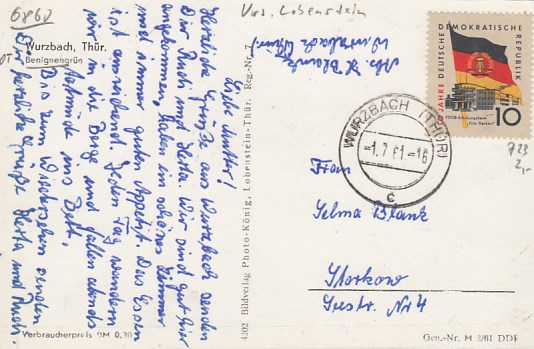 6860
Krs. Lobenstein
Wurzbach, Thür.
OT Benignengrün
Liebe Mutter!
Herzliche Grüße aus Wurzbach senden
Dir Rudi und Herta. Wir sind gut hier
angekommen, haben ein schönes Zimmer
und immer guten Appetit. Das Essen
ist ausreichend. Jeden Tag wandern
wir in die Berge und fallen abends
todmüde ins Bett.
Bis zum Wiedersehen senden
Dir herzliche Grüße Herta und Rudi.
Verbraucherpreis DM 0,20
4302 Bildverlag Photo-König, Lobenstein-Thür. Reg.-Nr. 7
Abs. H. Blank
Wurzbach (Thür)
10 JAHRE DEUTSCHE DEMOKRATISCHE REPUBLIK
10
WURZBACH (THÜR)
-1.7.61.-16
c
723
2,-
Frau
Selma Blank
Storkow
Seestr. Nr 4
Gen.-Nr. M 2/61 DDR